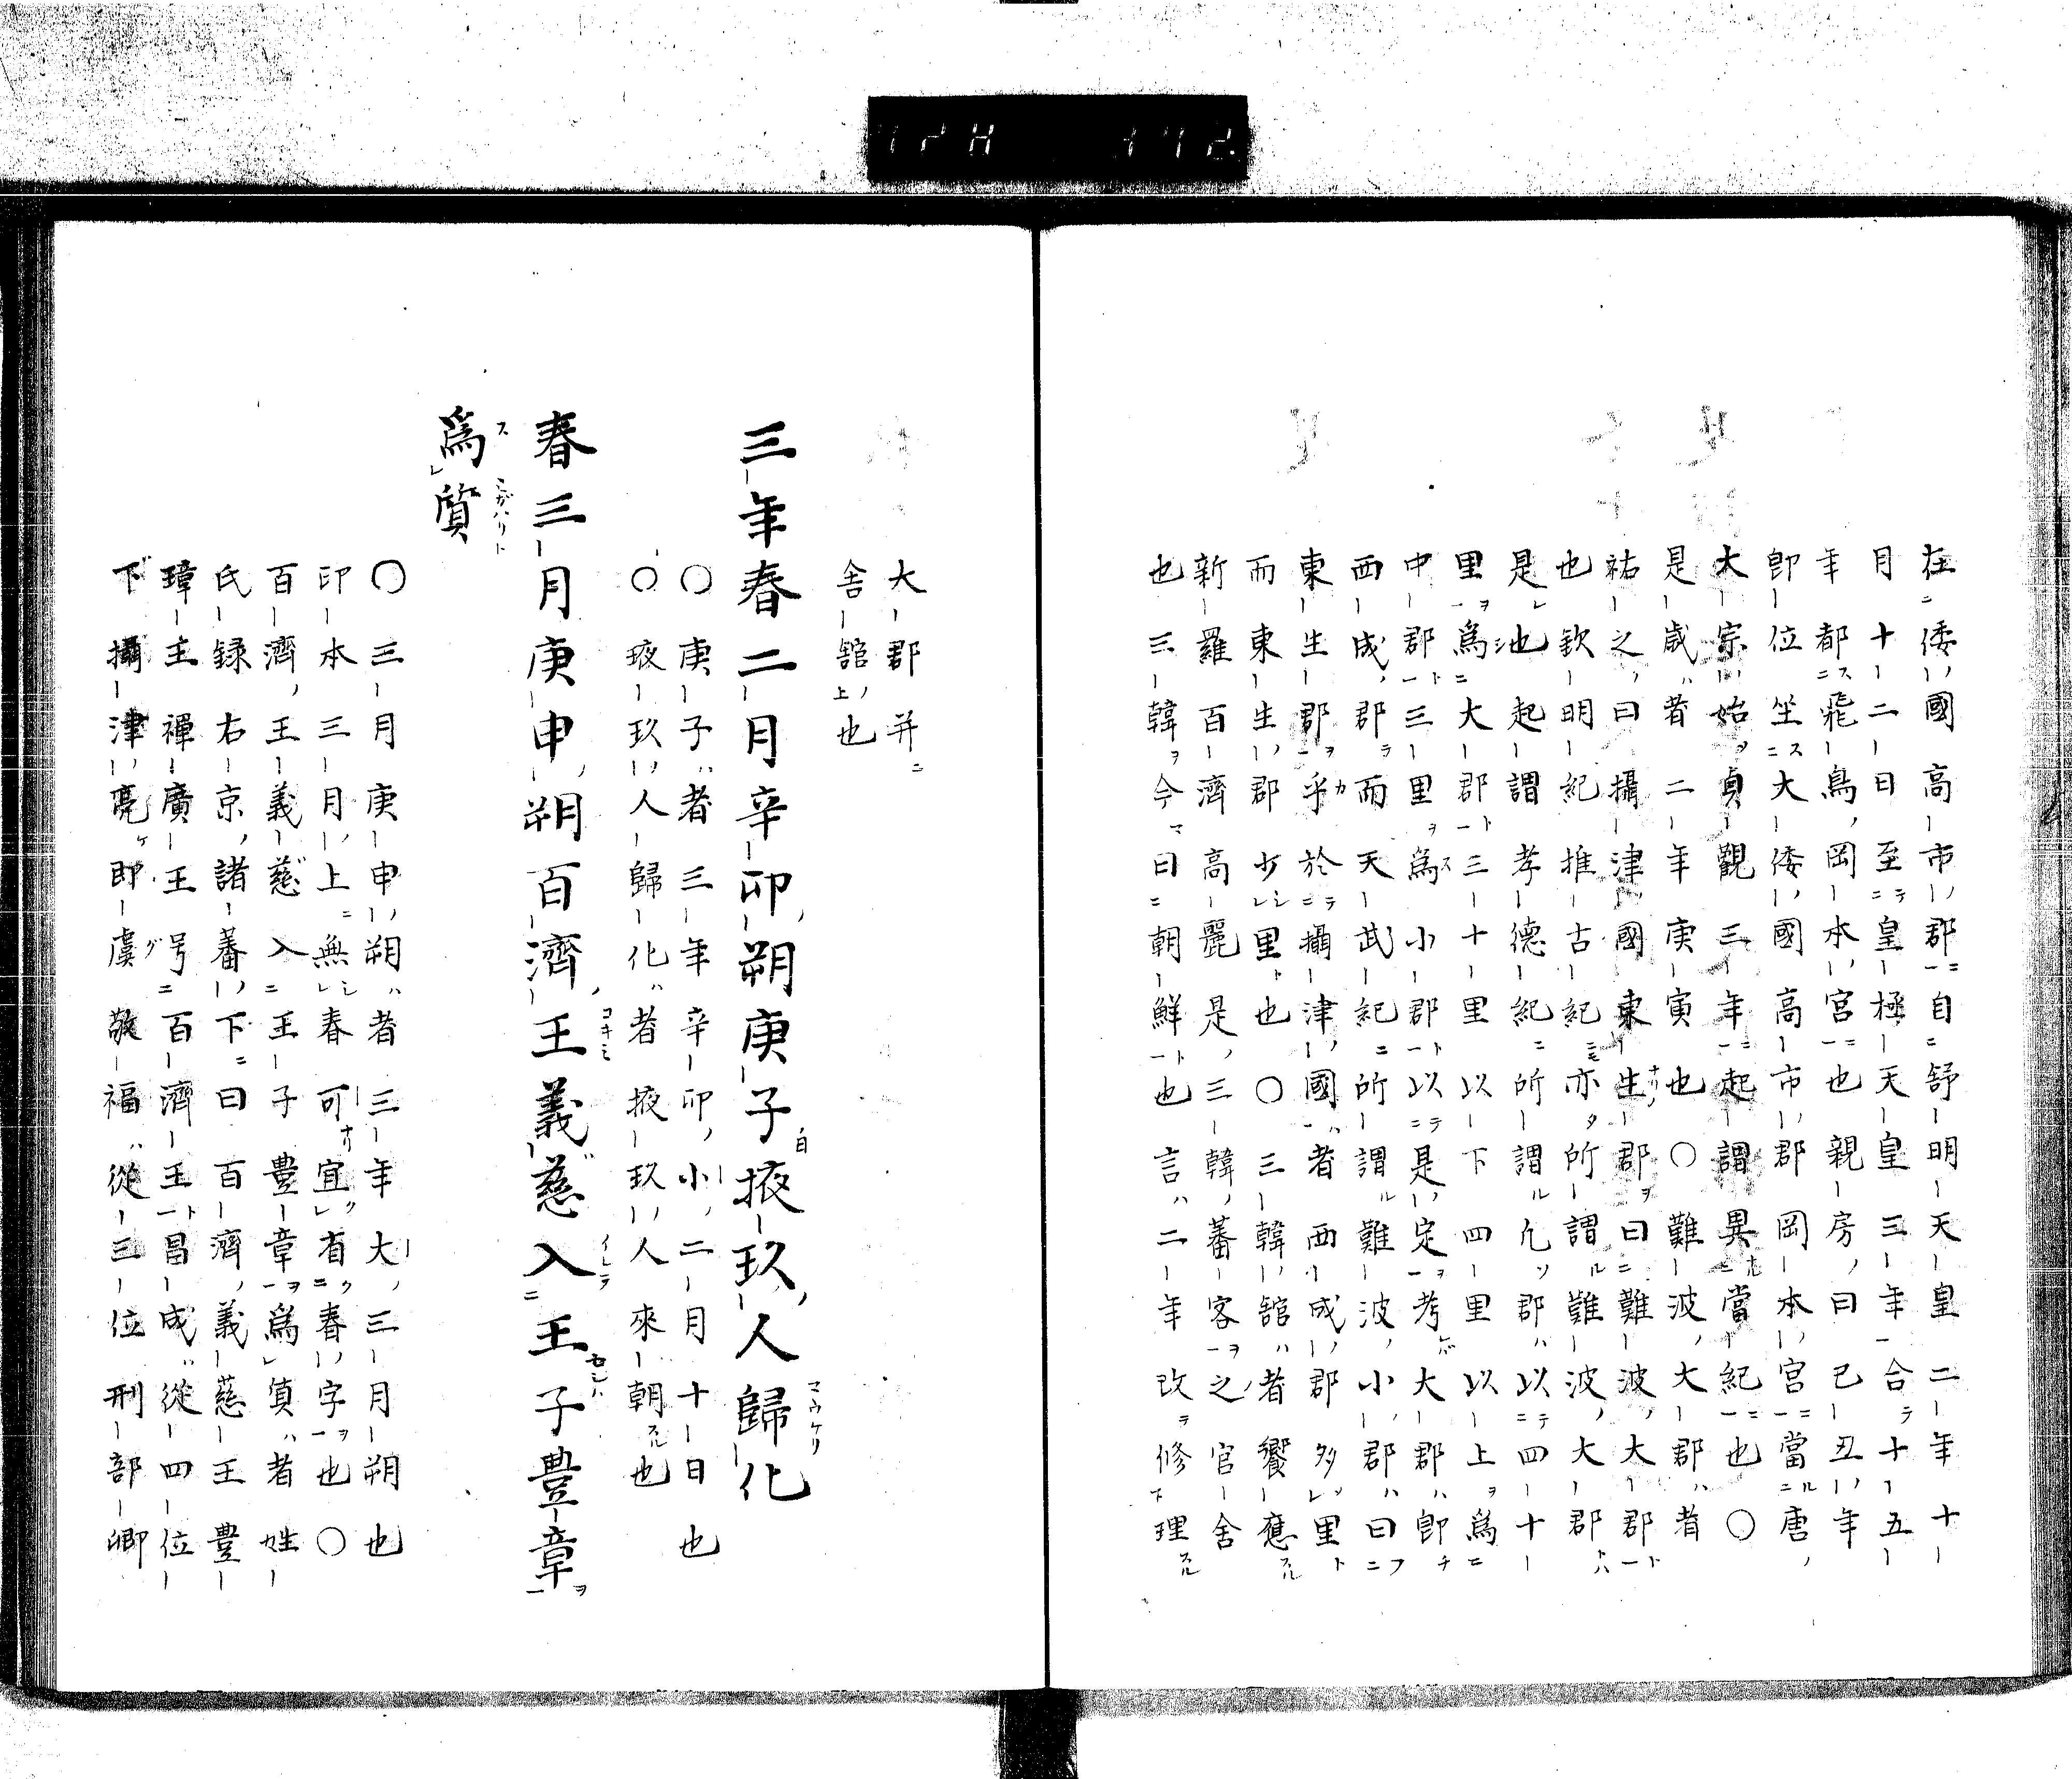 在倭國高市郡自舒明天皇二年十
月十二日至皇極天皇三年合十五
年都飛鳥岡本宮也親房曰己丑年
卽位坐大倭國高市郡岡本宮當唐
大宗始貞觀三年起謂異當紀也〇
是歲者二年庚寅也〇難波大郡者
祐之曰攝津國東生郡曰難波大郡
也欽明紀推古紀亦所謂難波大郡
是也起謂孝德紀所謂凡郡以四十
里爲大郡三十里以下四里以上爲
中郡三里爲小郡以是定考大郡卽
西成郡而天武紀所謂難波小郡曰
東生郡乎於攝津國者西成郡多里
而東生郡少里也〇三韓館者饗應
新羅百濟高麗是三韓蕃客之官舍
也三韓今曰朝鮮也言二年改修理
大郡并
舍館也
三年春二月辛卯朔庚子掖玖人歸化
〇庚子者三年辛卯小二月十日也
〇掖玖人歸化者掖玖人來朝也
春三月庚申朔百濟王義慈入王子豊章
爲質
〇三月庚申朔者三年大三月朔也
印本三月上無春可宜有春字也〇
百濟王義慈入王子豊章爲質者姓
氏録右京諸蕃下曰百濟義慈王豊
璋王禪廣王号百濟王昌成從四位
下攝津亮即虞敬福從三位刑部卿